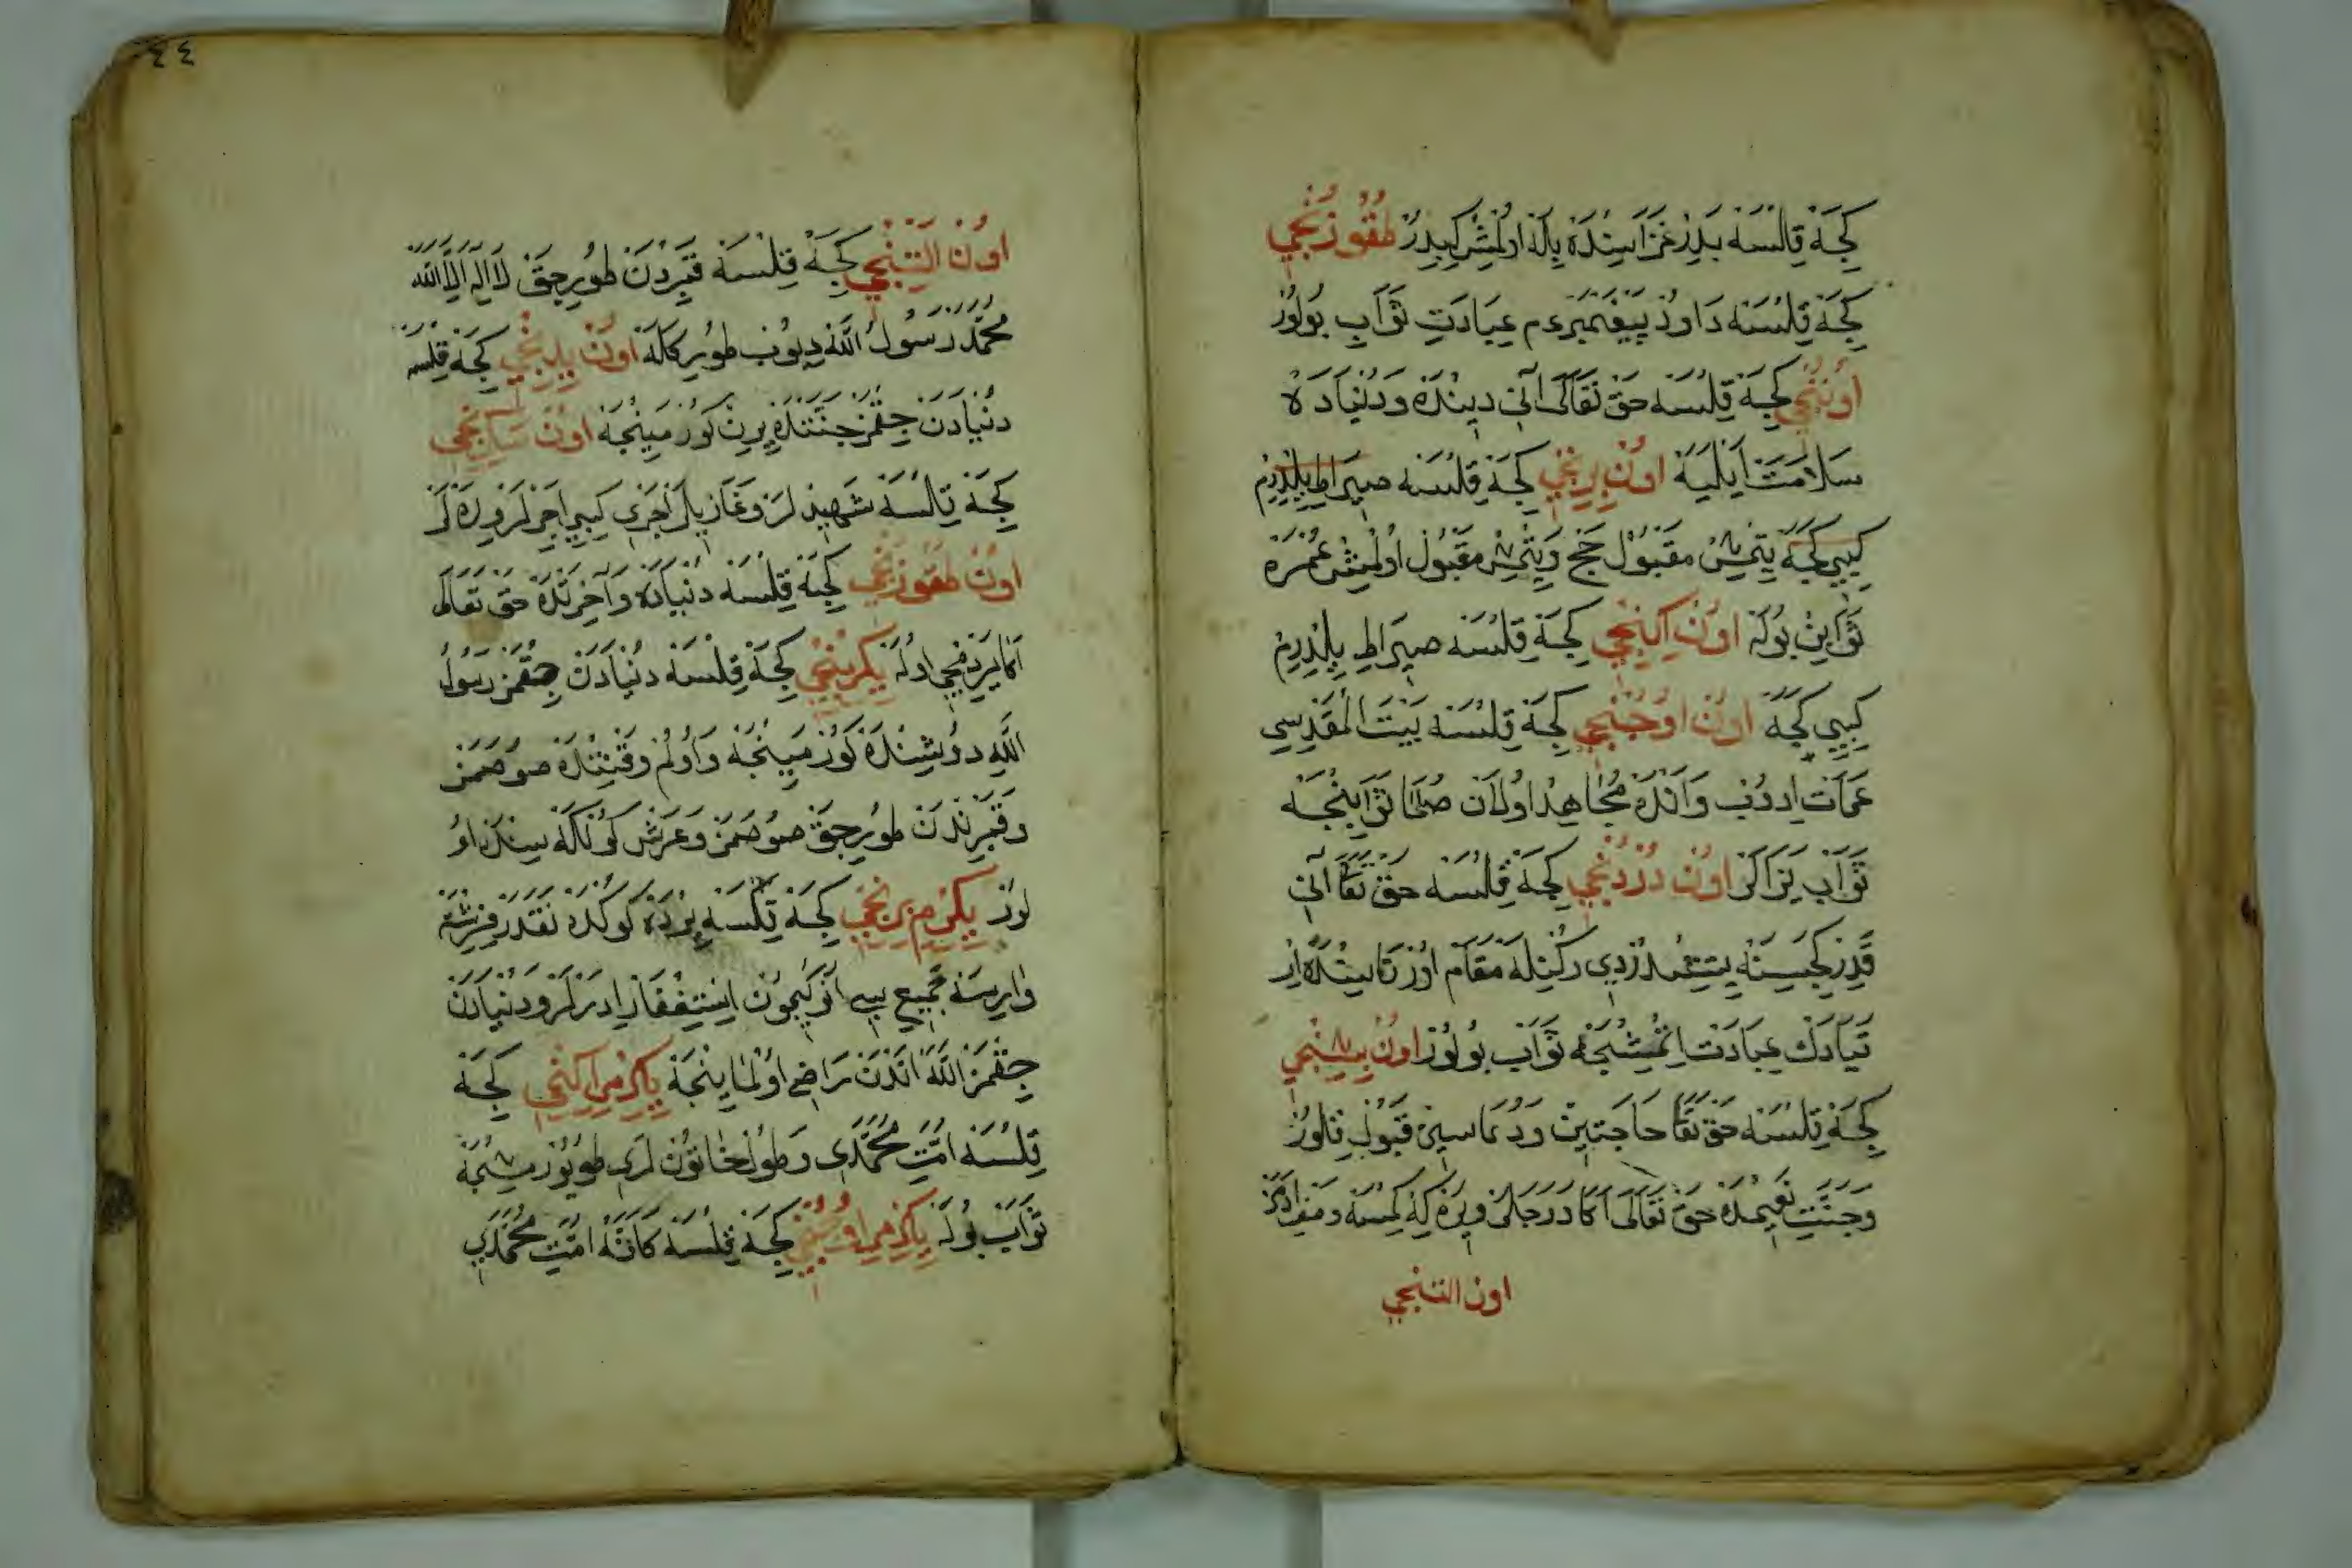 كِجَه قِلْسَه بَدِرْ غَزَاسِنْدَه بِلَه اُولْمُشْ كِبِدِرْ طُقُوزُنْجِي
كِجَه قِلْسَه دَاوُدْ پَيْغَمْبَر عم عِبَادَتِ ثَوَابِ بُولُورْ
اُونُنْجِي كِجَه قِلْسَه حَقْ تَعَالَى آنِي دِينْدَه وَدُنْيَادَه
سَلَامَتْ اَيْلَيَه اُونْ بِرِنْجِي كِجَه قِلْسَه صِيرَاطِ يِلْدِرِمْ
كِيبِي كِجَه يِتْمِشْ مَقْبُولْ حَجْ وَيِتْمِشْ مَقْبُولْ اُولْمِشْ عُمْرَه
ثَوَابِنْ بُولَه اُونْ اِكِنْجِي كِجَه قِلْسَه صِيرَاطِ يِلْدِرِمْ
كِيبِي كِجَه اُونْ اُوجُنْجِي كِجَه قِلْسَه بَيْتَ الْمُقَدِّسِي
عِمَاتْ اِدُوبْ وَانْدَه مُجَاهِدْ اُولَانْ صُلَحَا ثَوَابِنْجَه
ثَوَابِ يَزَالَرْ اُونْ دُرْدُنْجِي كِجَه قِلْسَه حَقْ تَعَا آنِي
قَدِرْ كِجَسِنَه يِتِشْدُرْدِي رُكْنِلَه مَقَامْ اُوزْتَاسِنْدَه اِرْ
تَيَادَكْ عِبَادَتْ اِتْمِشْجَه ثَوَابِ بُولُورْ اُونْ بِشِنْجِي
كِجَه قِلْسَه حَقْ تَعَا حَاجَتِينْ وَدُعَاسِينْ قَبُولِ قِلُورْ
وَجَنَّتِ نَعِيمْدَه حَقْ تَعَالَى اَكَا دَرَجَلَرْ وِيرَه كِه كِمْسَه
اون التنجي
اُونْ اَلْتِنْجِي كِجَه قِلْسَه قَبِرْدَنْ طُورِجَقْ لَا اِلَهَ اِلَّا اللّٰه
مُحَمَّدْ رَسُولُ اللّٰه دِيُوبْ طُورِ كَلَه اُونْ يِدِنْجِي كِجَه قِلْسَه
دُنْيَادَنْ جِقْمَزْ جَنَّتْدَه يِرِنْ كُورْمَيِنْجَه اُونْ سَكِزِنْجِي
كِجَه قِلْسَه شَهِيدْلَرْ وَغَازِيلَرْ اَجْرِي كِيبِي اَجِرْلَرْ وِيرَه لَرْ
اُونْ طُقُوزُنْجِي كِجَه قِلْسَه دُنْيَادَه وَآخِرَتْدَه حَقْ تَعَالَى
اَكَا يَرْدِمْجِي اُولَه يِكِرْمِنْجِي كِجَه قِلْسَه دُنْيَادَنْ جِقْمَزْ رَسُولُ
اللّٰهِ دُوشِنْدَه كُورْمَيِنْجَه وَاُولُمْ وَقْتِنْدَه صُوصَمَزْ
وَقَبْرِنْدَنْ طُورِجَقْ صُوصَمَزْ وَعَرْشْ كُولْكَه سِنْدَه اُو
لُورْ يِكِرْمِ بِرِنْجِي كِجَه قِلْسَه يِرْدَه كُوكْدَه نَقَدَرْ فِرِشْتَه
وَارِيسَه جَمِيعِ سِي آنُوكِجُونْ اِسْتِغْفَارْ اِدَرْلَرْ وَدُنْيَادَنْ
جِقْمَزْ اللّٰه اَنْدَنْ رَاضِي اُولْمَايِنْجَه يِكِرْمِ اِكِنْجِي كِجَه
قِلْسَه اُمَّتِ مُحَمَّدِي وَطُولْ خَاتُونْلَرِي طُويُورْمِشْجَه
ثَوَابْ بُولَه يِكِرْمِ اُوجُنْجِي كِجَه قِلْسَه كَانَّه اُمَّتِ مُحَمَّدِي